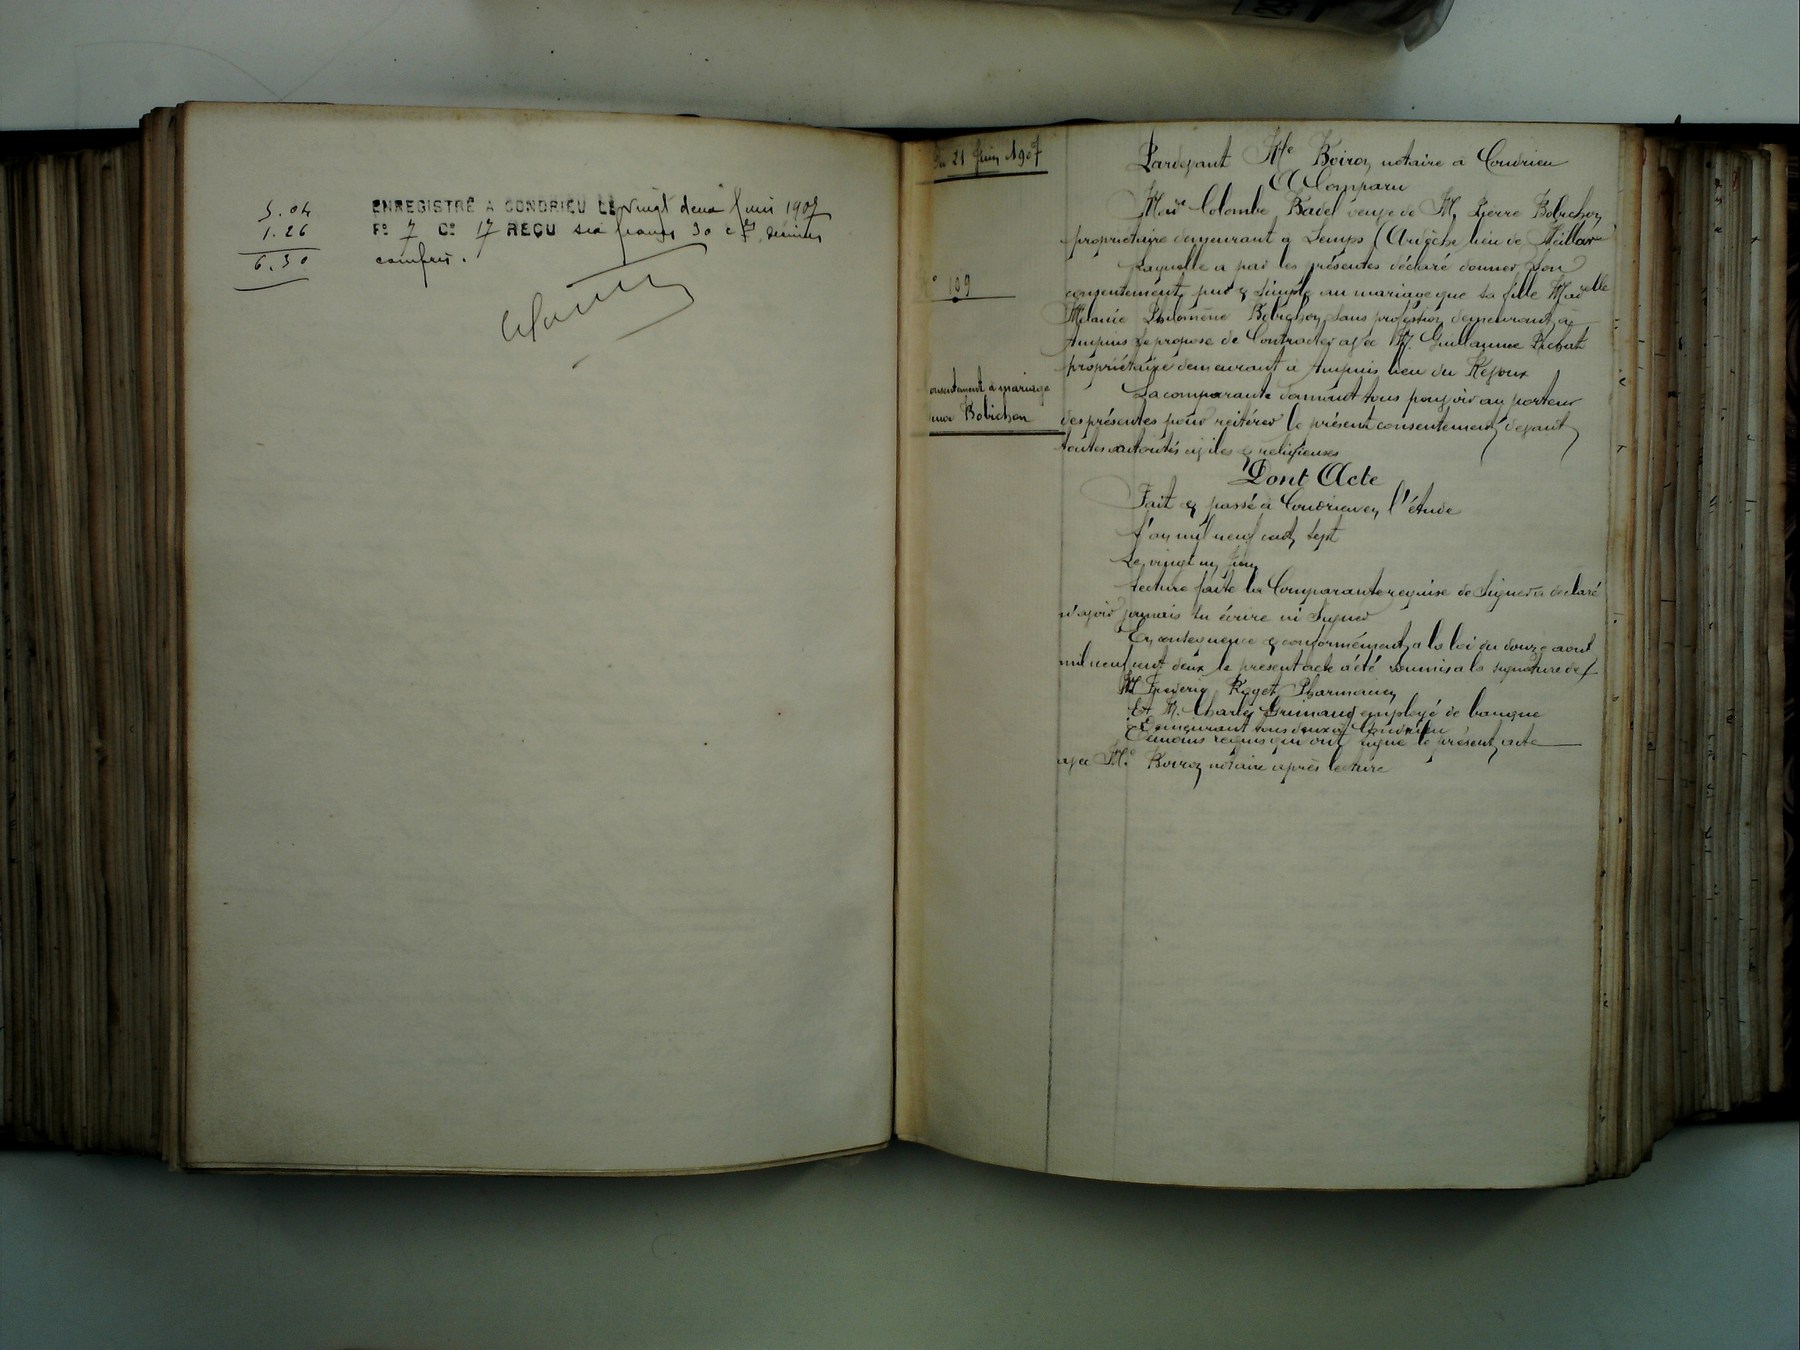 5.04
1.26
6.30
ENREGISTRÉ A CONDRIEU LE vingt deux Juin 1907
Fº 7 Cº 17 REÇU six francs 30 cs, décimes
compris.
Du 21 Juin 1907
Nº 109
Consentement à mariage
Veuve Bobichon
Pardevant Me Boiron notaire à Condrieu
A Comparu
Made Colombe Badel veuve de M. Pierre Bobichon
propriétaire demeurant à Lemps (Ardèche lieu de
Laquelle a par les présentes déclaré donner son
consentement pur & simple au mariage que sa fille Madelle
Mélanie Philomène Bobichon sans profession demeurant à
Ampuis se propose de Contracter avec M. Guillaume Pichat
propriétaire demeurant à Ampuis lieu du
La comparante donnant tous pouvoir au porteur
des présentes pour réitérer le présent consentement devant
toutes autorités civiles & religieuses
Dont Acte
Fait & passé à Condrieu en l'étude
L'an mil neuf cent sept
Le vingt un Juin
Lecture faite la Comparante requise de Signer a déclaré
n'avoir jamais su écrire ni Signer
En conséquence & conformément à la loi du douze aout
mil neuf cent deux le présent acte a été soumis a la signature de
M Frédéric Roget Pharmacien
Et M. Charles Grimaud employé de banque
Demeurant tous deux à Condrieu
Témoins requis qui ont signé le présent acte
avec Me Boiron notaire après lecture